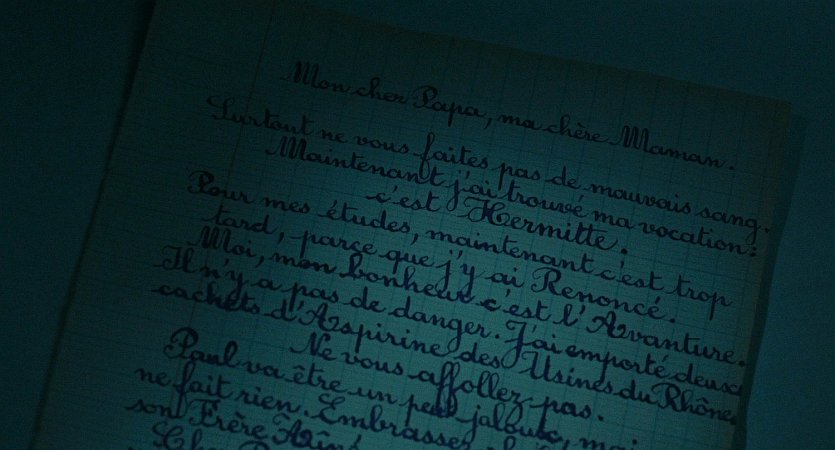 Mon cher Papa, ma chère Maman.
Surtout ne vous faites pas de mauvais sang.
Maintenant j'ai trouvé ma vocation:
c'est Hermitte.
Pour mes études, maintenant c'est trop
tard, parce que j'y ai Renoncé.
Moi, mon bonheur c'est l'Avanture.
Il n'y a pas de danger. J'ai emporté deux
cachets d'Aspirine des Usines du Rhône.
Ne vous affollez pas.
Paul va être un peu jaloux, mai
ne fait rien. Embrassez
son Frère Aîné
Cher